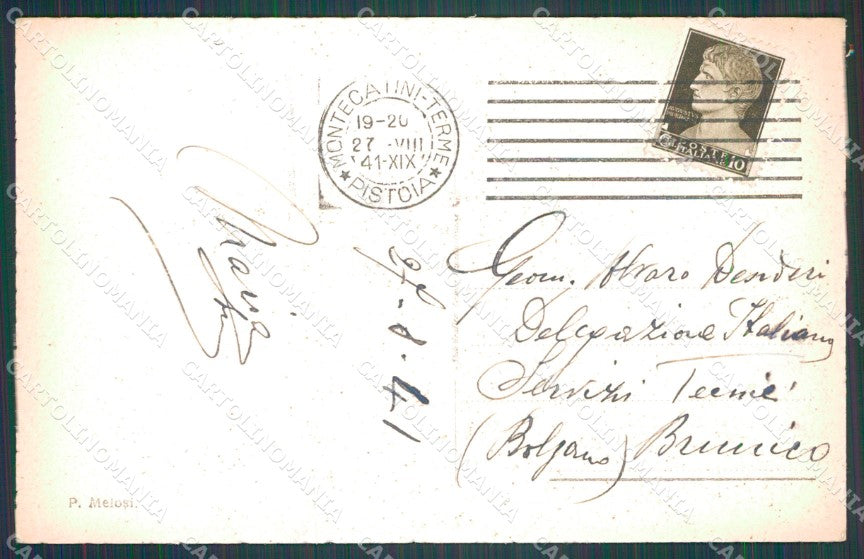 MONTECATINI-TERME
19-20
27 -VIII
41-XIX
★ PISTOIA ★
POSTE
ITALIANE 10
27-8-41
Geom. Alvaro Desideri
Delegazione Italiana
Servizi Tecnici
(Bolzano) Brunico
P. Melosi.
CARTOLINOMANIA